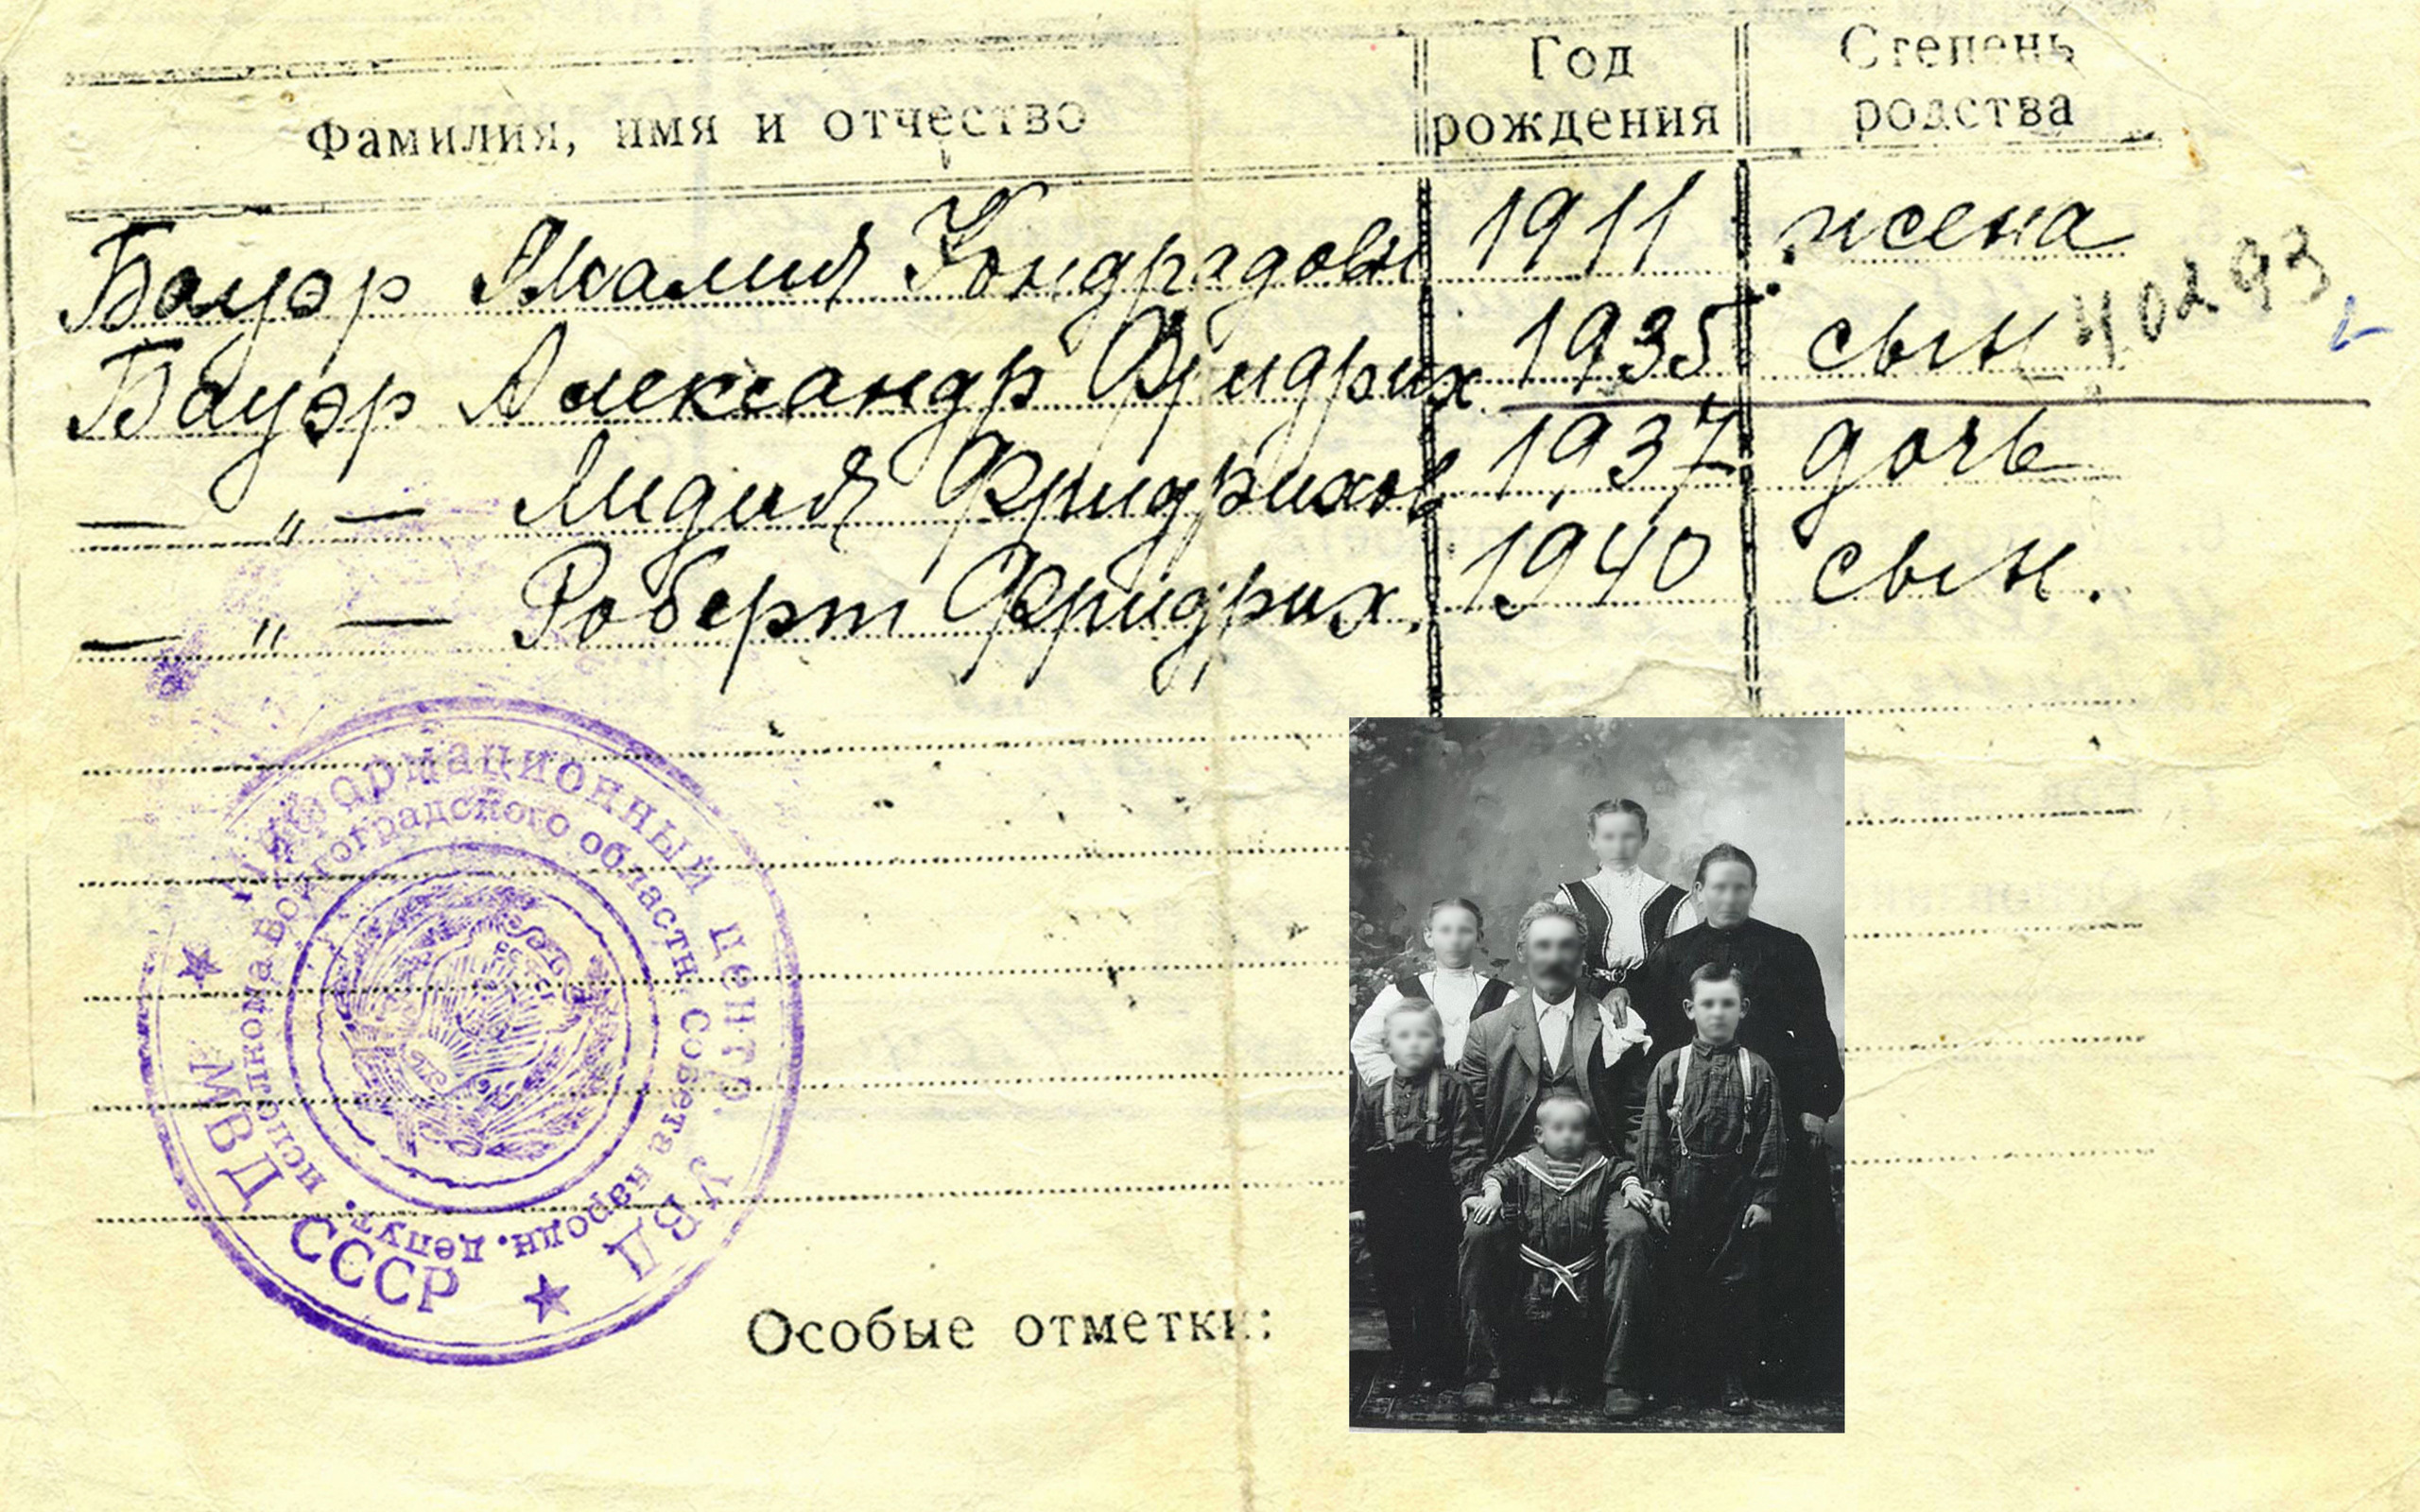 Фамилия, имя и отчество
Год рождения
Степень родства
Бауэр Амалия Кондрадовн 1911 жена
Бауэр Александр Фридрих 1935 сын
— „ — Лидия Фридрихов 1937 дочь
— „ — Роберт Фридрих. 1940 сын.
Информационный центр. УВД
исполкома Волгоградского областн. Совета народн. депут.
МВД СССР
Особые отметки: